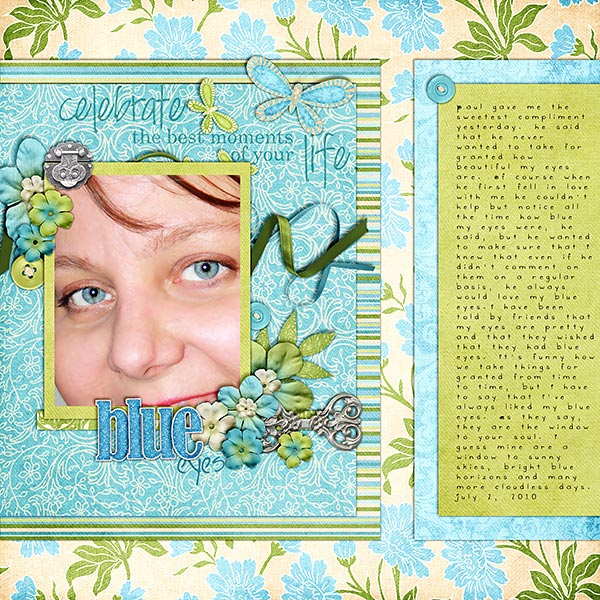 celebrate
the best moments
of your
life
blue
eyes
Paul gave me the
sweetest compliment
yesterday. he said
that he never
wanted to take for
granted how
beautiful my eyes
are. Of course when
he first fell in love
with me he couldn't
help but notice all
the time how blue
my eyes were, he
said, but he wanted
to make sure that I
knew that even if he
didn't comment on
them on a regular
basis, he always
would love my blue
eyes. I have been
told by friends that
my eyes are pretty
and that they wished
that they had blue
eyes. It's funny how
we take things for
granted from time
to time, but I have
to say that I've
always liked my blue
eyes. As they say,
they are the window
to your soul. I
guess mine are a
window to sunny
skies, bright blue
horizons and many
more cloudless days.
July 2, 2010